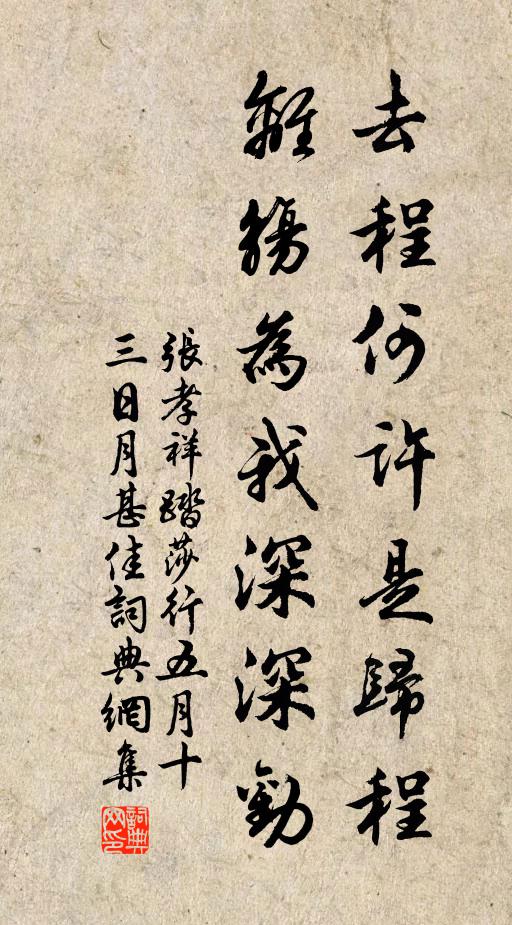 去程何許是歸程
離觴為我深深勸
張孝祥踏莎行五月十
三日月甚佳詞典網集
詞典网印